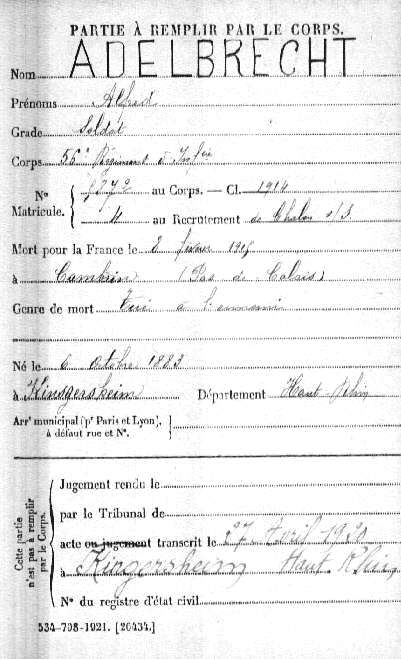 PARTIE À REMPLIR PAR LE CORPS.
Nom ADELBRECHT
Prénoms Alfred
Grade Soldat
Corps 56e Régiment d'Infie
No Matricule. { au Corps. — Cl. 1914
4 au Recrutement de Chalon s/S
Mort pour la France le 2 février 1915
à Cambrin (Pas de Calais)
Genre de mort Tué à l'ennemi
Né le 6 octobre 1883
à Kingersheim Département Haut Rhin
Arrt municipal (pr Paris et Lyon), à défaut rue et No.
Cette partie n'est pas à remplir par le Corps.
Jugement rendu le
par le Tribunal de
acte ou jugement transcrit le 27 Avril 1920
à Kingersheim Haut Rhin
No du registre d'état civil
534-708-1921. [26434.]